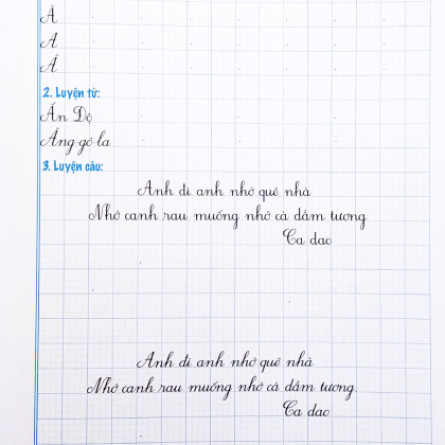 Ă
A
Á
2. Luyện từ:
Ấn Độ
Ăng-gô-la
3. Luyện câu:
Anh đi anh nhớ quê nhà
Nhớ canh rau muống nhớ cà dầm tương
Ca dao
Anh đi anh nhớ quê nhà
Nhớ canh rau muống nhớ cà dầm tương
Ca dao